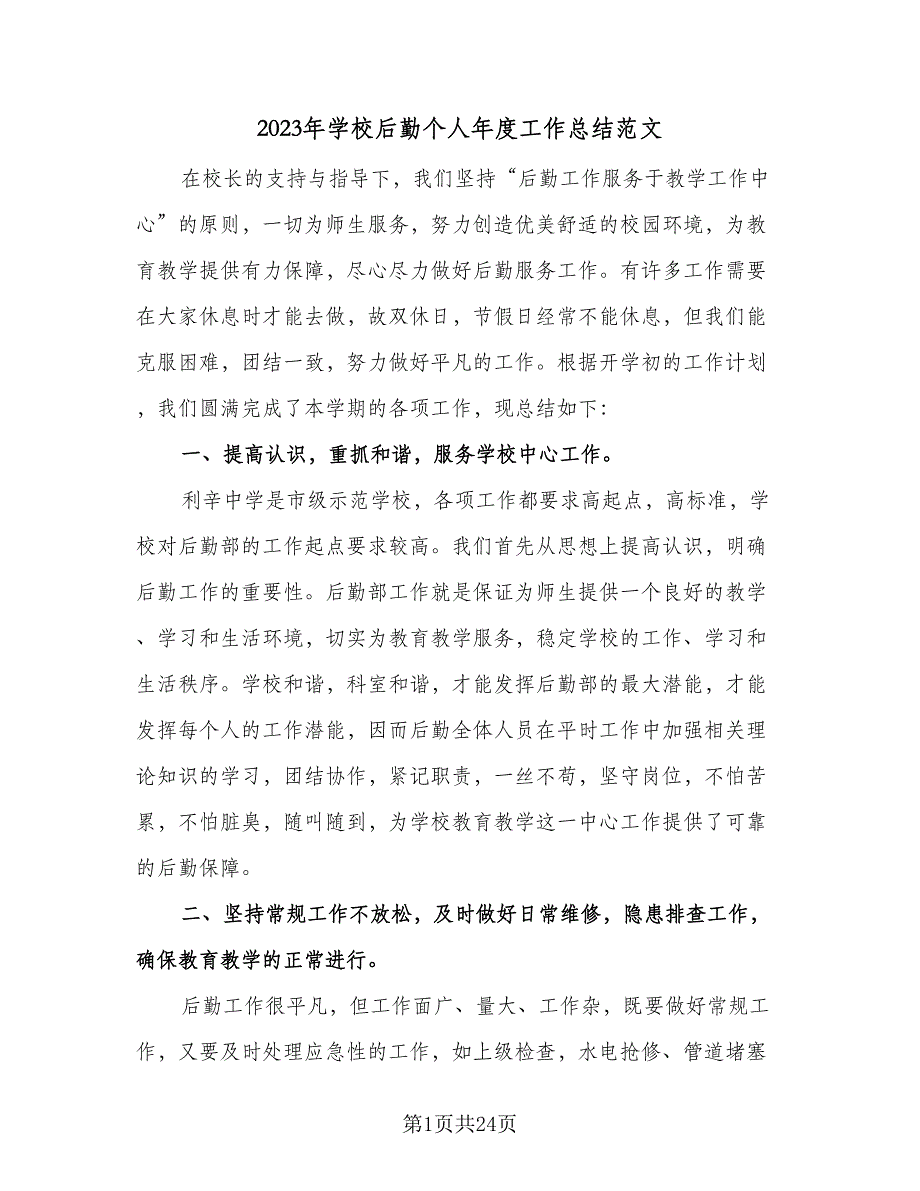 2023年学校后勤个人年度工作总结范文
在校长的支持与指导下，我们坚持“后勤工作服务于教学工作中
心”的原则，一切为师生服务，努力创造优美舒适的校园环境，为教
育教学提供有力保障，尽心尽力做好后勤服务工作。有许多工作需要
在大家休息时才能去做，故双休日，节假日经常不能休息，但我们能
克服困难，团结一致，努力做好平凡的工作。根据开学初的工作计划
，我们圆满完成了本学期的各项工作，现总结如下：
一、提高认识，重抓和谐，服务学校中心工作。
利辛中学是市级示范学校，各项工作都要求高起点，高标准，学
校对后勤部的工作起点要求较高。我们首先从思想上提高认识，明确
后勤工作的重要性。后勤部工作就是保证为师生提供一个良好的教学
、学习和生活环境，切实为教育教学服务，稳定学校的工作、学习和
生活秩序。学校和谐，科室和谐，才能发挥后勤部的最大潜能，才能
发挥每个人的工作潜能，因而后勤全体人员在平时工作中加强相关理
论知识的学习，团结协作，紧记职责，一丝不苟，坚守岗位，不怕苦
累，不怕脏臭，随叫随到，为学校教育教学这一中心工作提供了可靠
的后勤保障。
二、坚持常规工作不放松，及时做好日常维修，隐患排查工作，
确保教育教学的正常进行。
后勤工作很平凡，但工作面广、量大、工作杂，既要做好常规工
作，又要及时处理应急性的工作，如上级检查，水电抢修、管道堵塞
第1页共24页